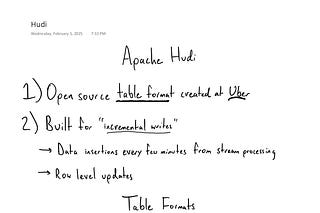 Hudi
Wednesday, February 5, 2025 7:53 PM
Apache Hudi
1) Open source table format created at Uber
2) Built for "incremental writes"
→ Data insertions every few minutes from stream processing
→ Row level updates
Table Formats